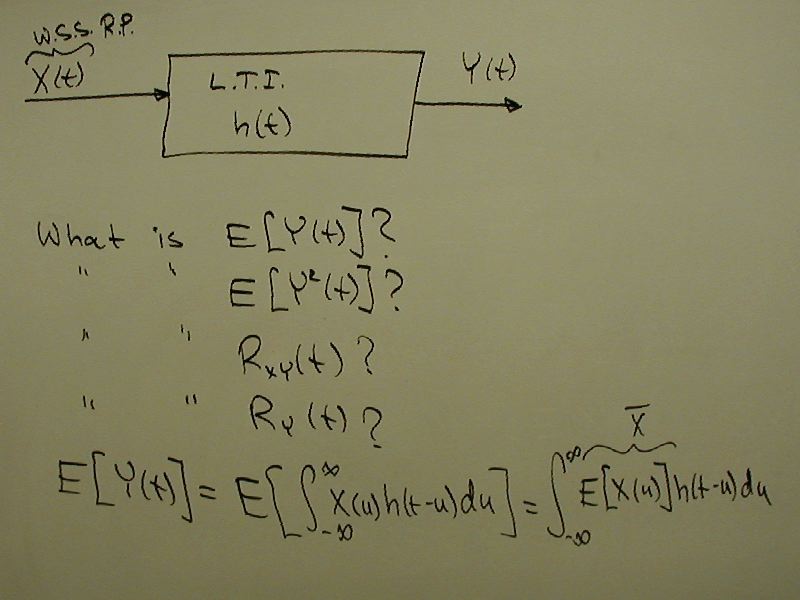 W.S.S. R.P.
X(t)
L.T.I.
h(t)
Y(t)
What is E[Y(t)]?
" " E[Y²(t)]?
" " R_XY(t)?
" " R_Y(t)?
X̄
E[Y(t)] = E[∫_{-∞}^{∞} X(u)h(t-u)du] = ∫_{-∞}^{∞} E[X(u)]h(t-u)du